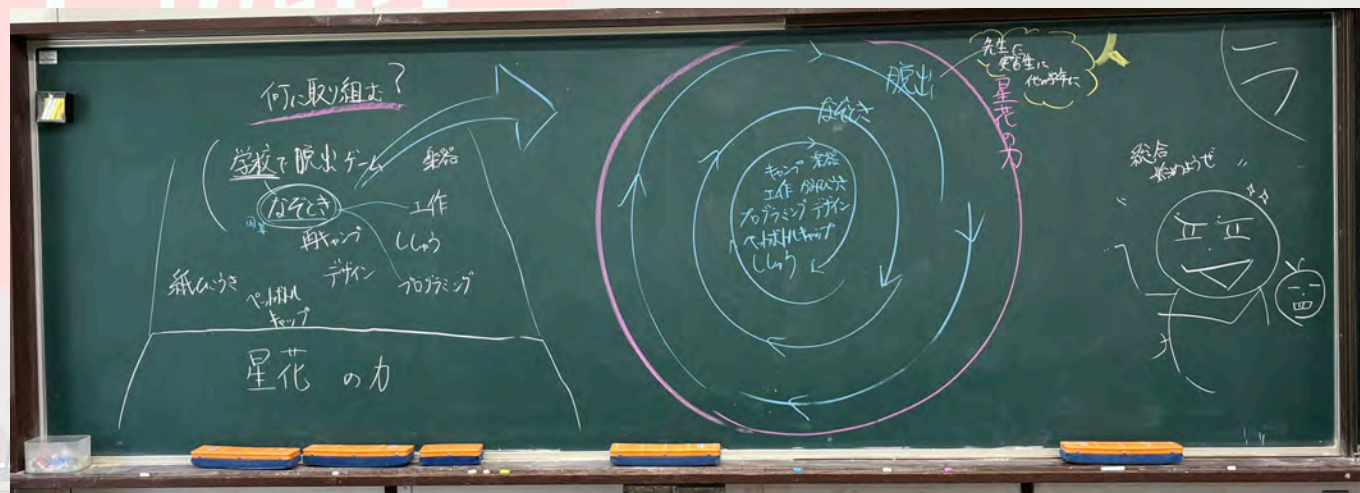 何に取り組む?
学校で脱出ゲーム
楽器
なぞとき
工作
再キャンプ
ししゅう
デザイン
プログラミング
紙ひこうき
ペットボトル
キャップ
星花の力
脱出
なぞとき
キャンプ 楽器
工作 紙ひこうき
プログラミング デザイン
ペットボトルキャップ
ししゅう
星花の力
先生に
実習生に
他の学年に
総合
始めようぜ